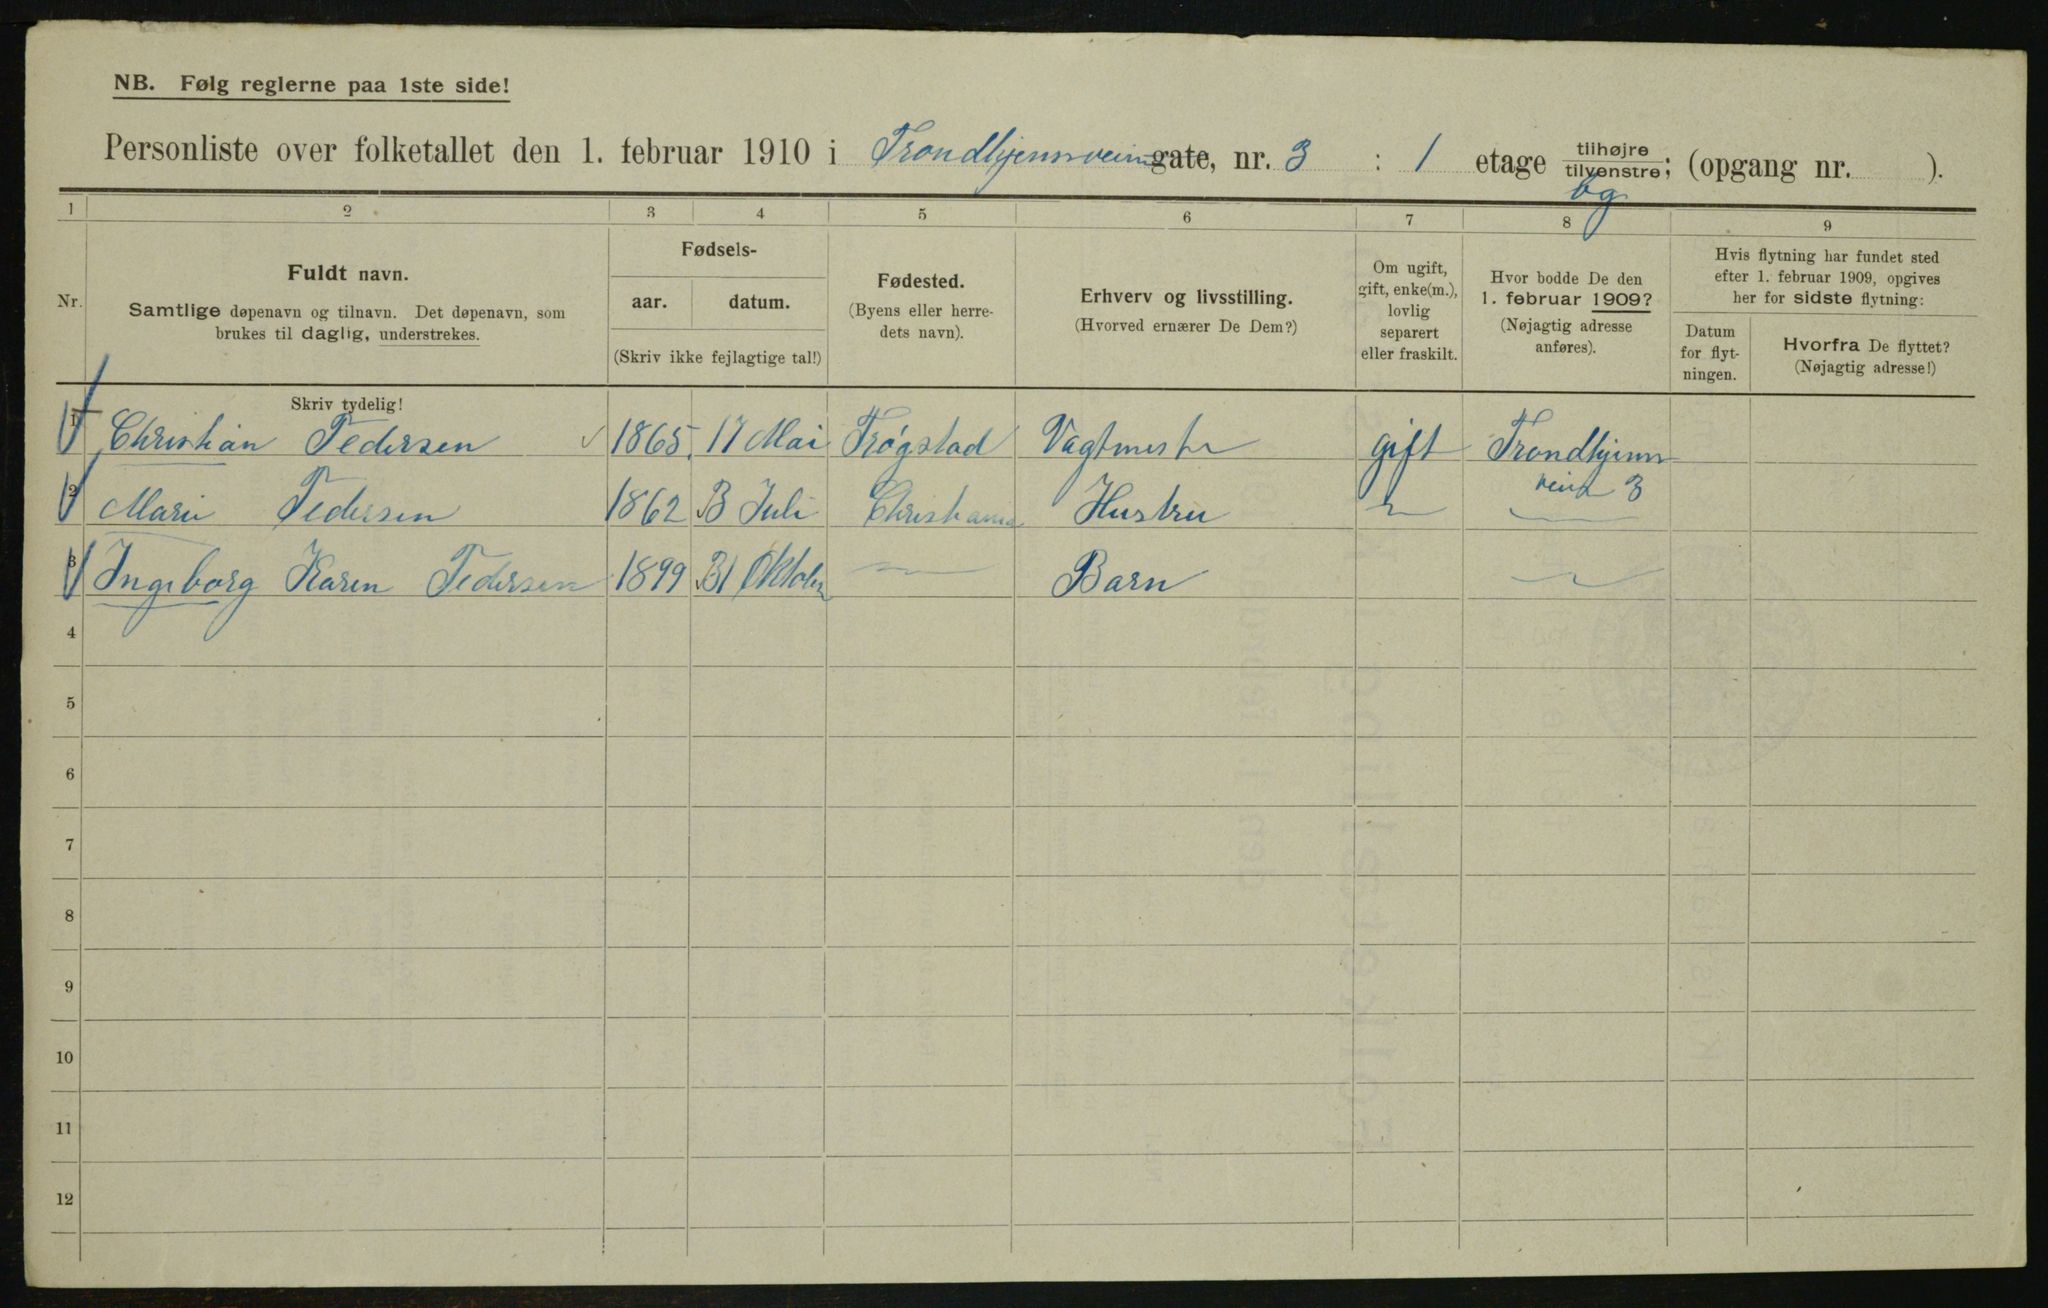 NB. Følg reglerne paa 1ste side!
Personliste over folketallet den 1. februar 1910 i Trondhjemsveien gate, nr. 3 : 1 etage tilhøjre tilvenstre; (opgang nr. ).
bg
1 2 3 4 5 6 7 8 9
Nr.
Fuldt navn.
Samtlige døpenavn og tilnavn. Det døpenavn, som
brukes til daglig, understrekes.
Fødsels-
aar. datum.
(Skriv ikke fejlagtige tal!)
Fødested.
(Byens eller herre-
dets navn).
Erhverv og livsstilling.
(Hvorved ernærer De Dem?)
Om ugift,
gift, enke(m.),
lovlig
separert
eller fraskilt.
Hvor bodde De den
1. februar 1909?
(Nøjagtig adresse
anføres).
Hvis flytning har fundet sted
efter 1. februar 1909, opgives
her for sidste flytning:
Datum
for flyt-
ningen.
Hvorfra De flyttet?
(Nøjagtig adresse!)
Skriv tydelig!
1 Christian Pedersen 1865 17 Mai Trøgstad Vagtmester gift Trondhjems
veien 3
2 Marie Pedersen 1862 3 Juli Christiania Hustru
3 Ingeborg Karen Pedersen 1899 31 Oktober Barn
4
5
6
7
8
9
10
11
12